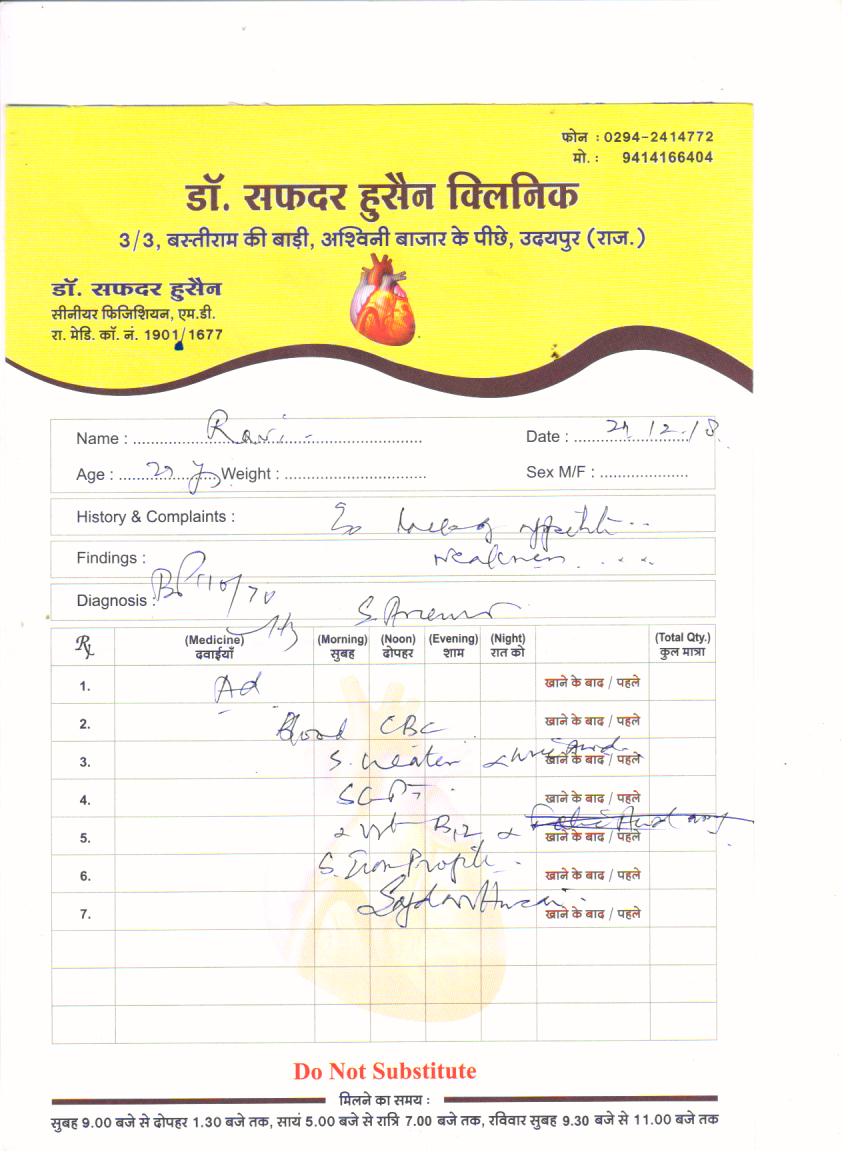 फोन : 0294-2414772
मो. : 9414166404
डॉ. सफदर हुसैन क्लिनिक
3/3, बस्तीराम की बाड़ी, अश्विनी बाजार के पीछे, उदयपुर (राज.)
डॉ. सफदर हुसैन
सीनीयर फिजिशियन, एम.डी.
रा. मेडि. कॉ. नं. 1901/1677
Name : Ravi Date : 12/18
Age : Weight : Sex M/F :
History & Complaints : appetite
Findings : weakness
BP 110/70
Diagnosis :
Rx (Medicine) (Morning) (Noon) (Evening) (Night) (Total Qty.)
दवाईयाँ सुबह दोपहर शाम रात को कुल मात्रा
1. Ad खाने के बाद / पहले
2. Blood CBC खाने के बाद / पहले
3. S. खाने के बाद / पहले
4. SGPT खाने के बाद / पहले
5. B12 खाने के बाद / पहले
6. S. Iron Profile खाने के बाद / पहले
7. खाने के बाद / पहले
Do Not Substitute
मिलने का समय :
सुबह 9.00 बजे से दोपहर 1.30 बजे तक, सायं 5.00 बजे से रात्रि 7.00 बजे तक, रविवार सुबह 9.30 बजे से 11.00 बजे तक